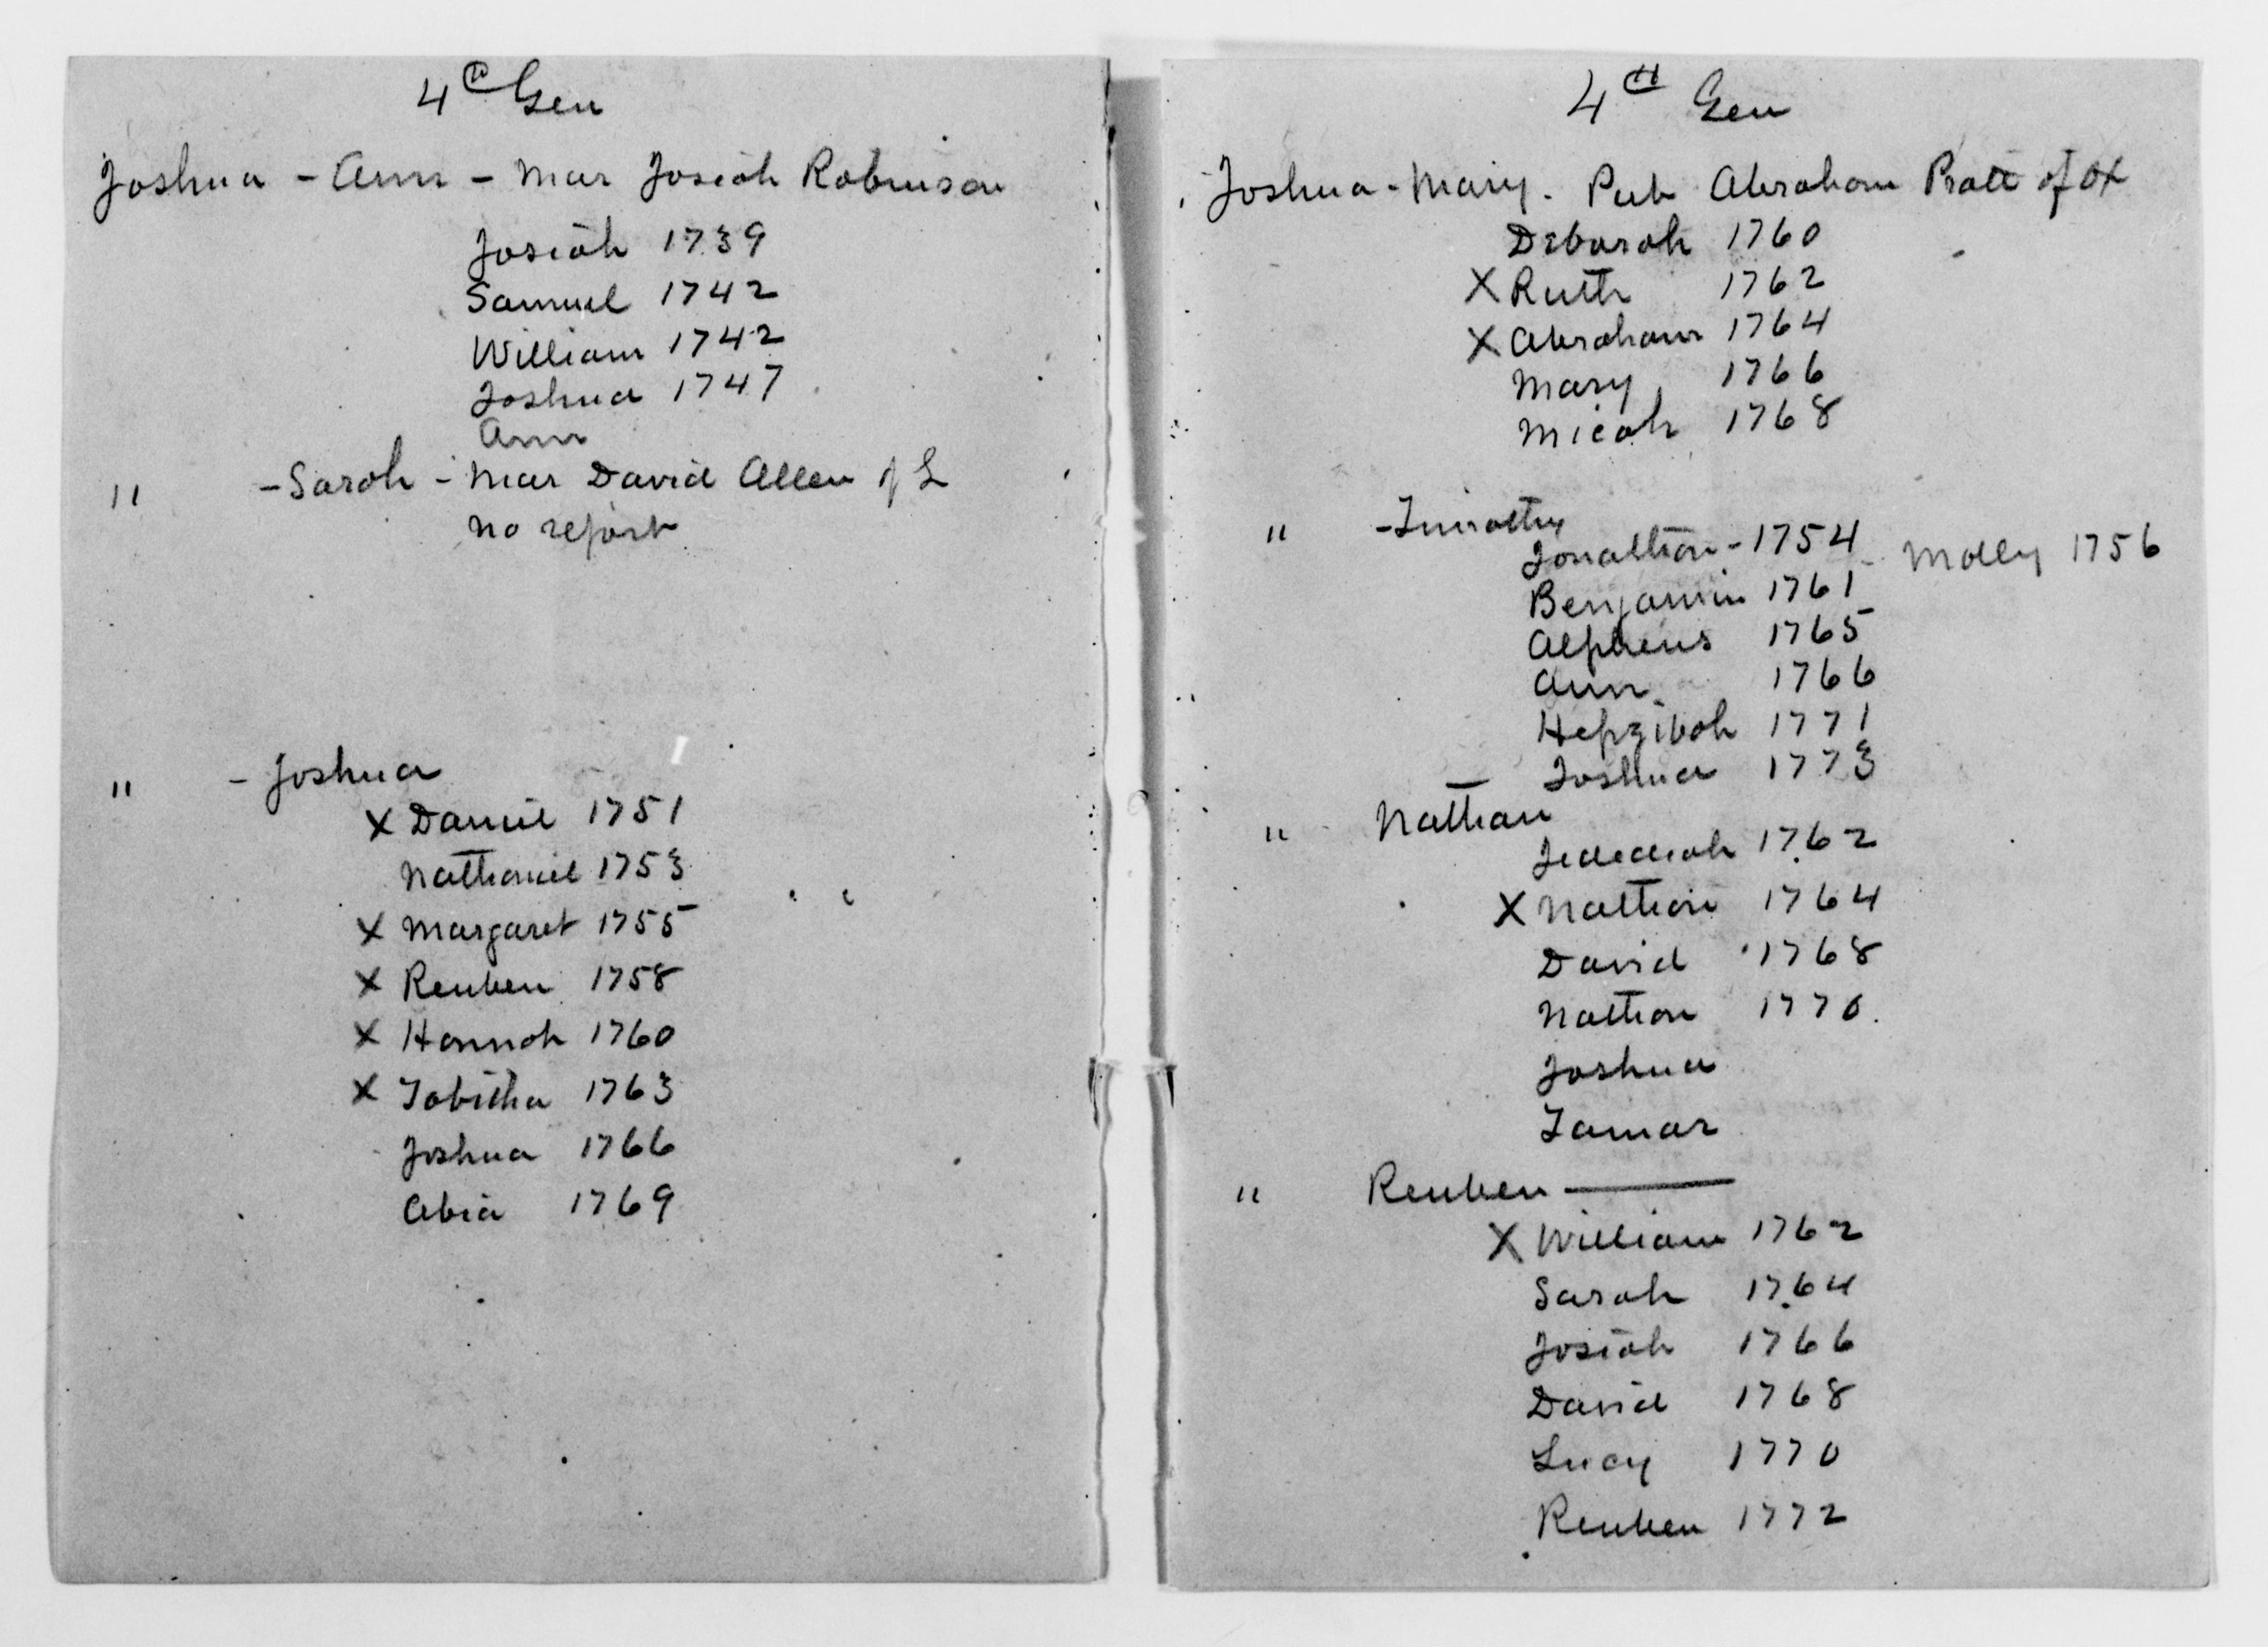 4th Gen
Joshua - Ann - Mar Josiah Robinson
Josiah 1739
Samuel 1742
William 1742
Joshua 1747
Ann
" - Sarah - Mar David Allen of L
no report
" - Joshua
X Daniel 1751
Nathaniel 1753
X Margaret 1755
X Reuben 1758
X Hannah 1760
X Tabitha 1763
Joshua 1766
Abia 1769
4th Gen
Joshua - Mary. Pub Abraham Pratt of Ox
Deborah 1760
X Ruth 1762
X Abraham 1764
Mary 1766
Micah 1768
" - Timothy
Jonathan - 1754 Molly 1756
Benjamin 1761
Alpheus 1765
Ann 1766
Hepzibah 1771
Joshua 1773
" - Nathan
Jedediah 1762
X Nathan 1764
David 1768
Nathan 1770.
Joshua
Tamar
" Reuben —
X William 1762
Sarah 1764
Josiah 1766
David 1768
Lucy 1770
Reuben 1772